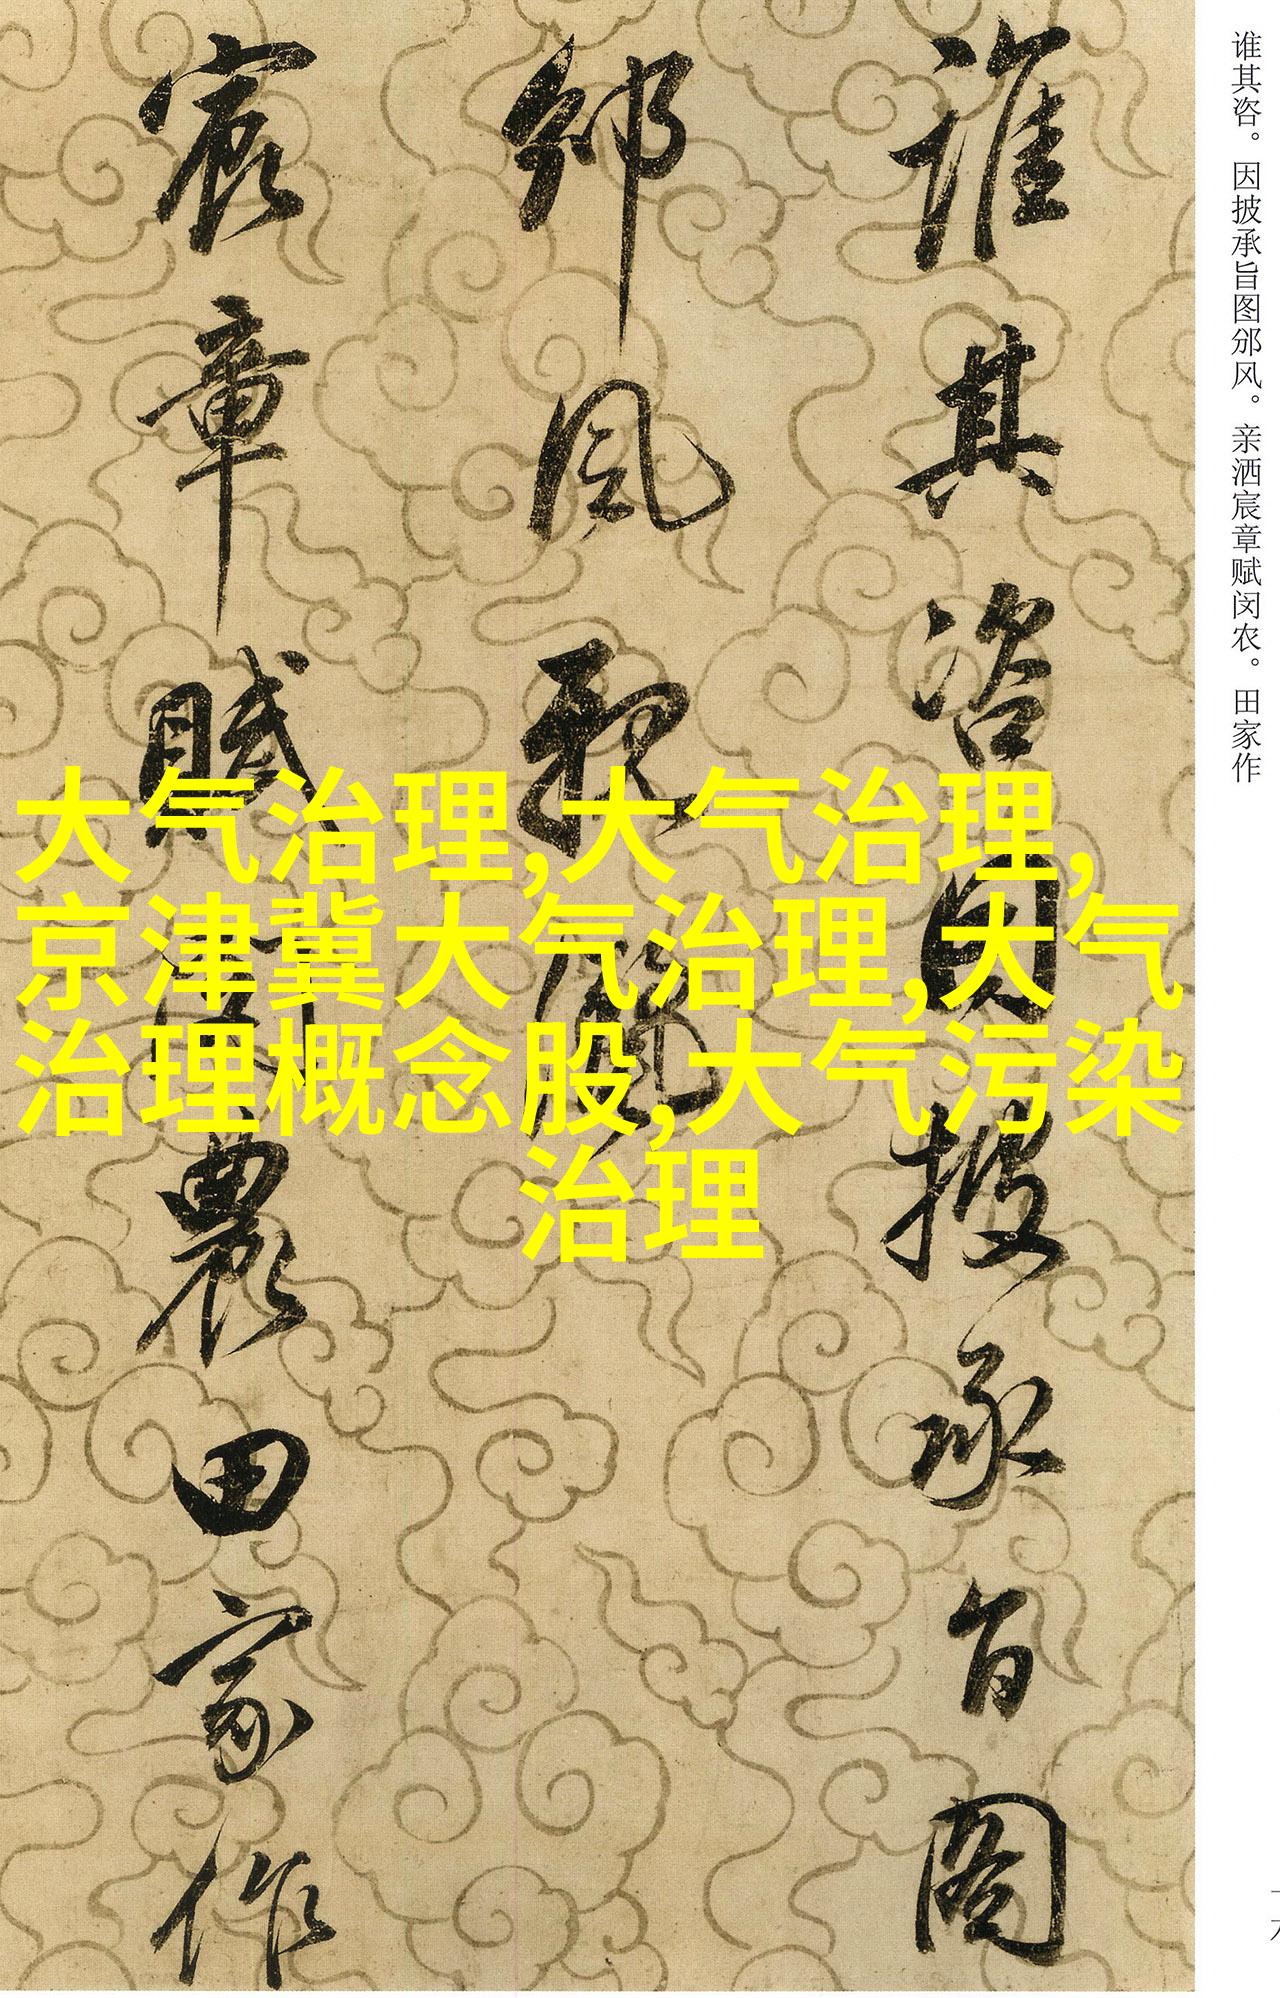 谁其咨。因披承旨图邠风。亲洒宸章赋闵农。田家作
誰其咨因披承旨圖
邠風親灑
宸章賦閔農田家作
大气治理,大气治理,
京津冀大气治理,大气
治理概念股,大气污染
治理